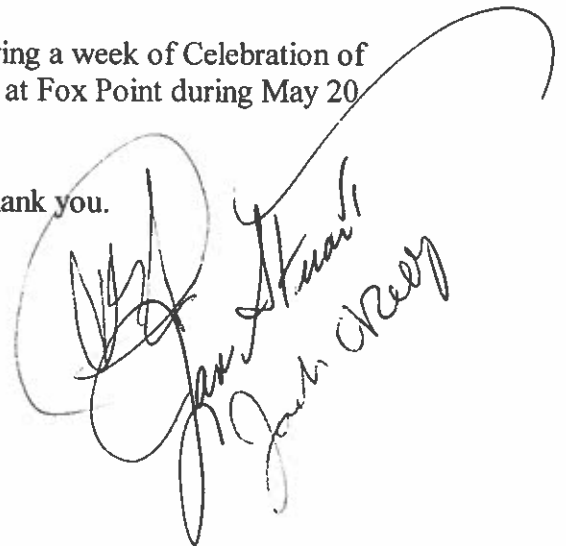 ing a week of Celebration of
at Fox Point during May 20
ank you.
Stuart
Jack O'Reilly